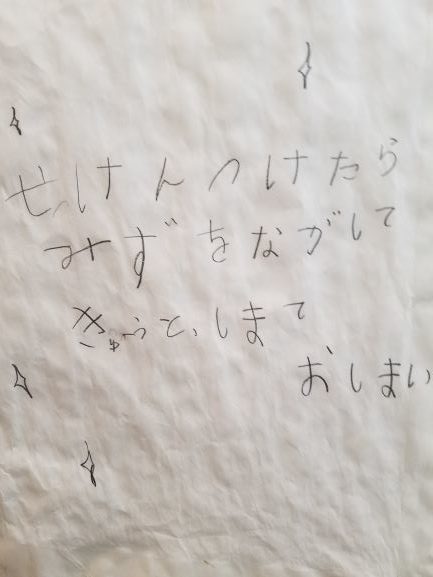 せっけんつけたら
みずをながして
きゅっと、しまて
おしまい